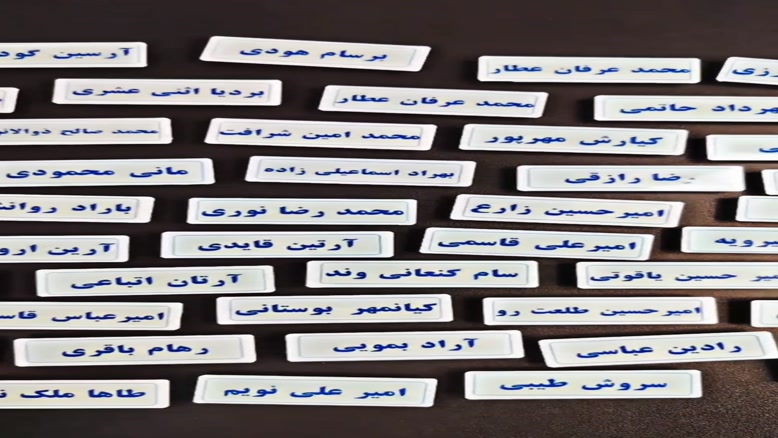 برسام هودی
آرسین
محمد عرفان عطار
بردیا اثنی عشری
محمد عرفان عطار
مهرداد حاتمی
محمد امین شرافت
محمد صالح
کیارش مهرپور
مانی محمودی
بهراد اسماعیلی زاده
رضا رازقی
امیرحسین زارع
محمد رضا نوری
باراد
امیرعلی قاسمی
آرتین قایدی
آرین
امیر حسین یاقوتی
سام کنعانی وند
آرتان اتباعی
امیرحسین طلعت رو
کیانمهر بوستانی
امیرعباس
رادین عباسی
آراد بمویی
رهام باقری
سروش طیبی
امیر علی نویم
طاها ملک